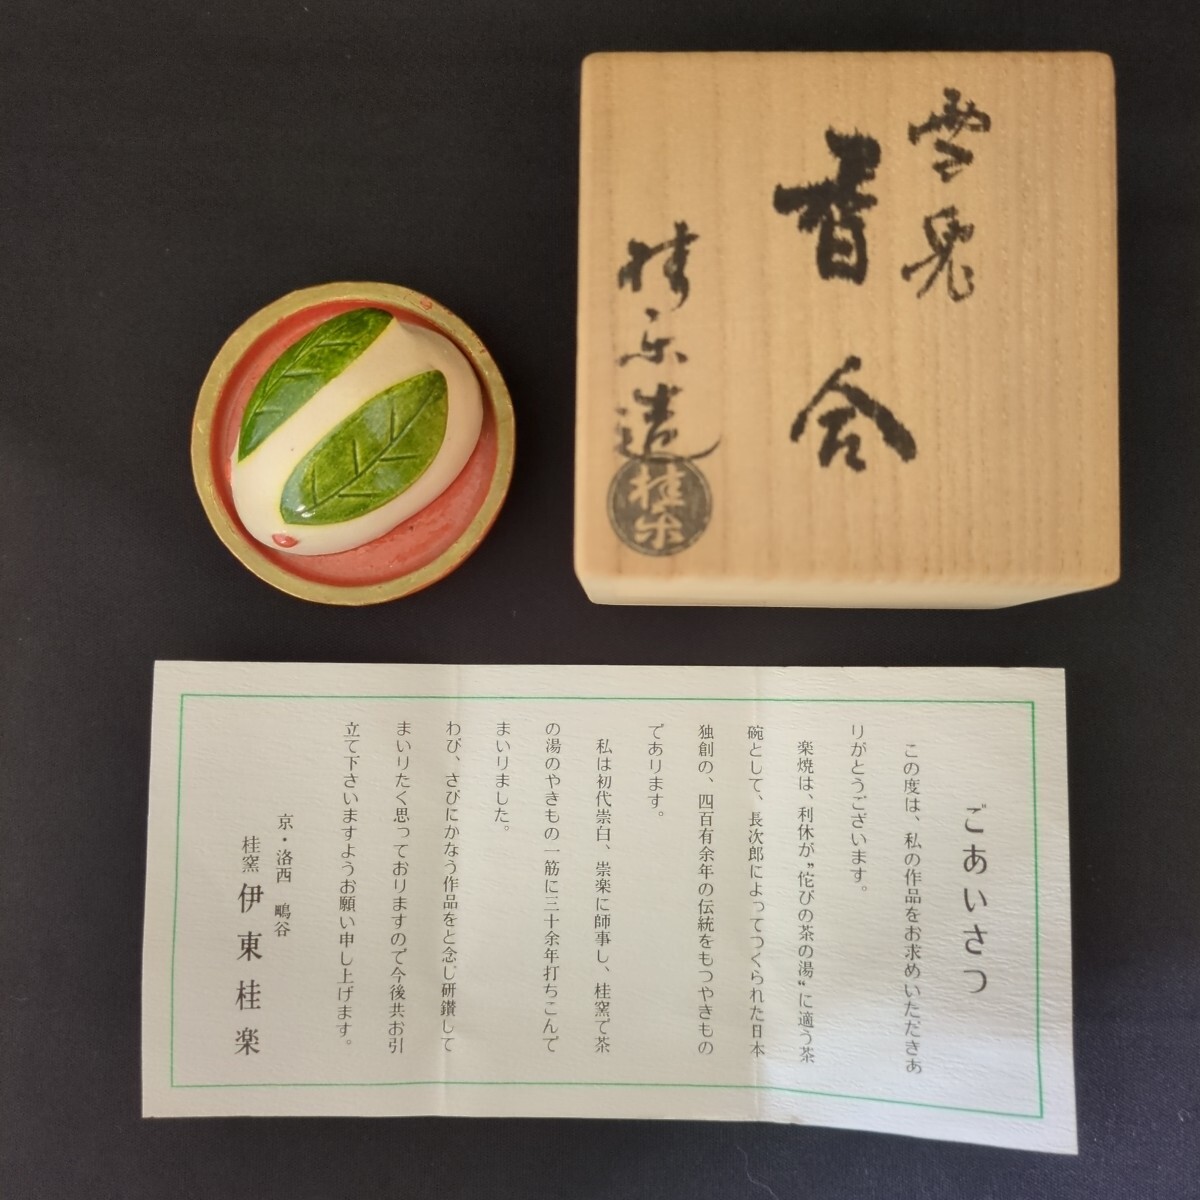 雪兎
香合
桂楽造
桂楽
ごあいさつ
この度は、私の作品をお求めいただきあ
りがとうございます。
楽焼は、利休が〝侘びの茶の湯〟に適う茶
碗として、長次郎によってつくられた日本
独創の、四百有余年の伝統をもつやきもの
であります。
私は初代崇白、崇楽に師事し、桂窯で茶
の湯のやきもの一筋に三十余年打ちこんで
まいりました。
わび、さびにかなう作品をと念じ研鑽して
まいりたく思っておりますので今後共お引
立て下さいますようお願い申し上げます。
京・洛西 鴫谷
桂窯 伊東桂楽